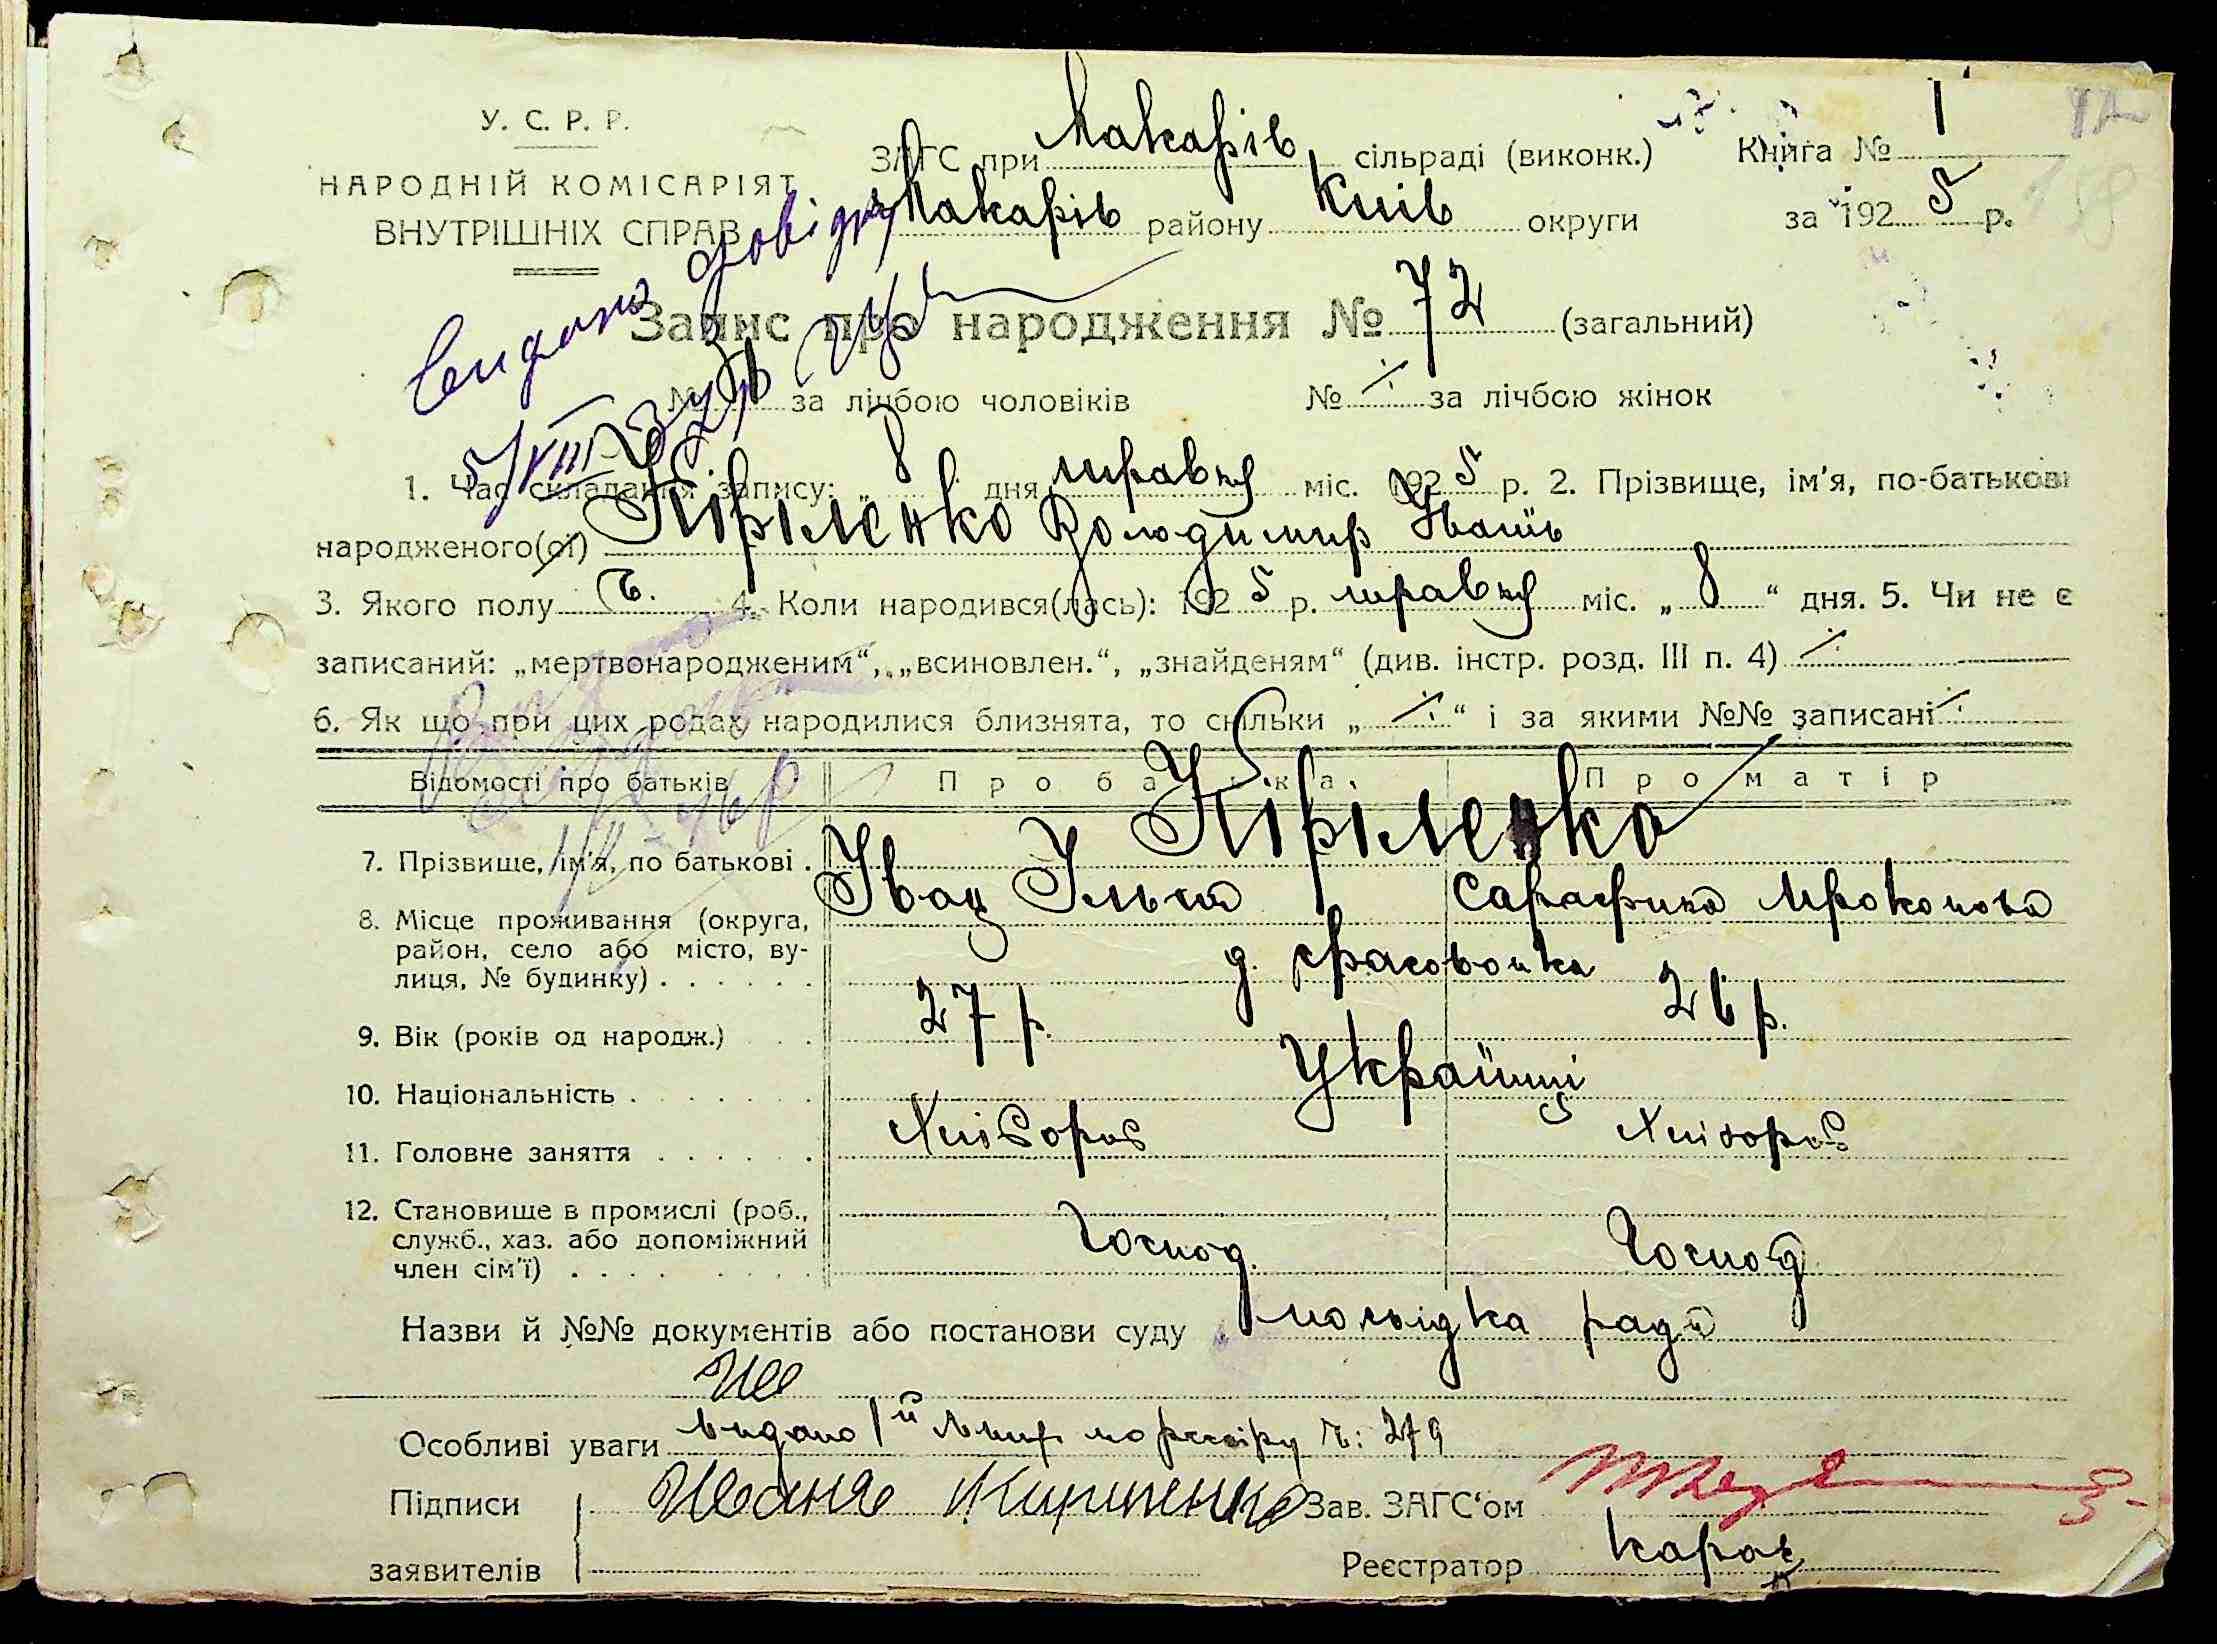 У. С. Р. Р.
НАРОДНІЙ КОМІСАРІЯТ
ВНУТРІШНІХ СПРАВ
ЗАГС при Макарів сільраді (виконк.) Книга № 1
Макарів району Київ округи за 1925 р.
Видано довідку
Запис про народження № 72 (загальний)
№ за лічбою чоловіків № ∕ за лічбою жінок
5/VIII
1. Час складання запису: „8 дня травня міс. 1925 р. 2. Прізвище, ім'я, по-батькові
народженого(ої) Кіріленко Володимир Іванів
3. Якого полу ч. 4. Коли народився(лась): 1925 р. травня міс. „8“ дня. 5. Чи не є
записаний: „мертвонародженим“, „всиновлен.“, „знайденям“ (див. інстр. розд. III п. 4)
6. Як що при цих родах народилися близнята, то скільки „ “ і за якими №№ записані
Відомості про батьків Про батька Про матір
Кіріленко
7. Прізвище, ім'я, по батькові
Іван Ільків Сарафина Прокопова
8. Місце проживання (округа, район, село або місто, вулиця, № будинку)
д.
9. Вік (років од народж.) 27 р. 26 р.
10. Національність Українці
11. Головне заняття Хлібороб Хлібороб
12. Становище в промислі (роб., служб., хаз. або допоміжний член сім'ї) Господ. Господ
Назви й №№ документів або постанови суду посвідка ради
Особливі уваги видано 1й
Підписи заявителів Кириленко
Зав. ЗАГС'ом
Реєстратор